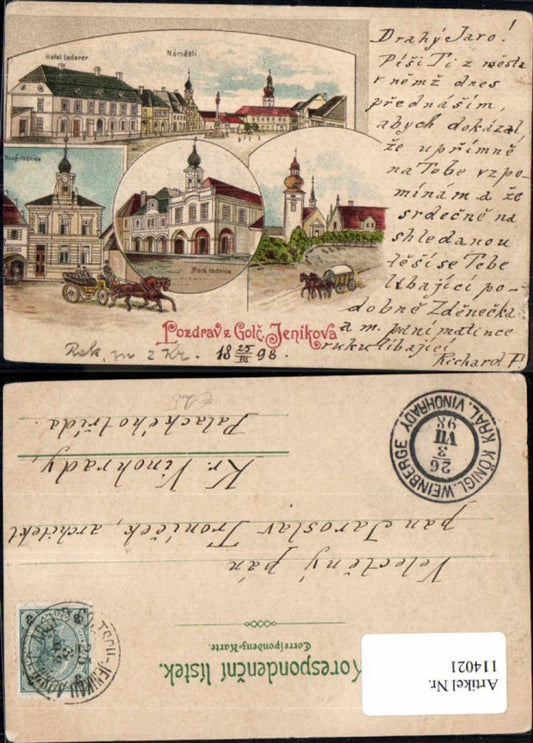 Hotel Lederer
Náměstí
Nová radnice
Stará radnice
Pozdrav z Golč. Jeníkova
18 25/III 98.
Drahý Jaro!
Píši Ti z města
v němž dnes
přednáším,
abych dokázal,
že upřímně
na Tebe vzpo-
mínám a že
srdečně na
shledanou
těší se Tebe
líbající po-
dobně Zdenečka
a m. paní matince
ruku líbající
Richard F.
Korespondenční lístek.
Correspondenz-Karte.
Velectěný pán
pan Jaroslav Troníček, architekt
Kr. Vinohrady,
Palackého třída.
KÖNIGL. WEINBERGE
KRÁL. VINOHRADY
26
3
VII
98
Artikel Nr.
114021